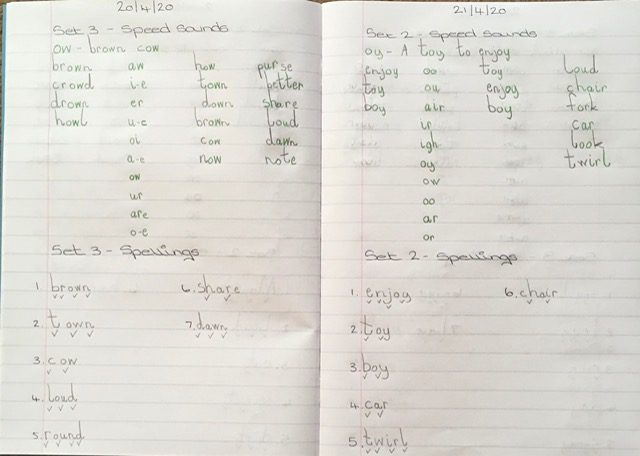 20/4/20
Set 3 - Speed Sounds
ow - brown cow
brown aw how purse
crowd i-e town better
drown er down share
howl u-e brown loud
oi cow dawn
a-e now note
ow
ur
are
o-e
Set 3 - Spellings
1. brown 6. share
2. town 7. dawn
3. cow
4. loud
5. round
21/4/20
Set 2 - Speed Sounds
oy - A toy to enjoy
enjoy oo toy loud
toy ou enjoy chair
boy air boy fork
ir car
igh look
oy twirl
ow
oo
ar
or
Set 2 - Spellings
1. enjoy 6. chair
2. toy
3. boy
4. car
5. twirl